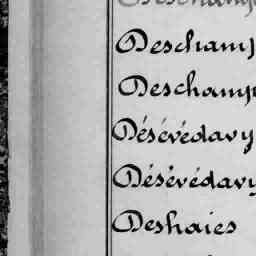 Deschamp
Deschamp
Désévédavy
Désévédavy
Deshaies